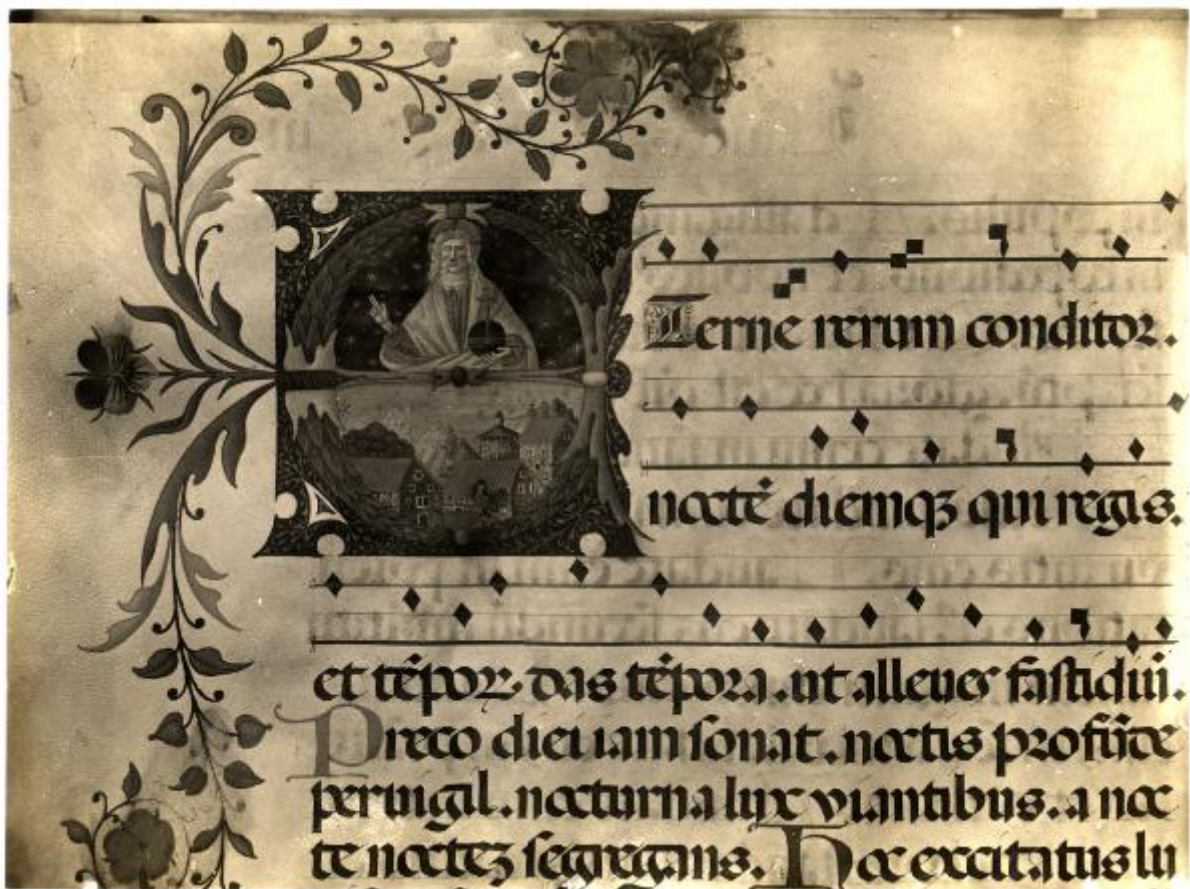 Eterne rerum conditor.
noctē diemqꝫ qui regis.
et tēpoꝝ das tēpora. ut alleues fastidiū.
Preco diei iam sonat. noctis profūde
peruigil. nocturna lux viantibus. a noc
te nocteꝫ segregans. Hoc excitatus lu